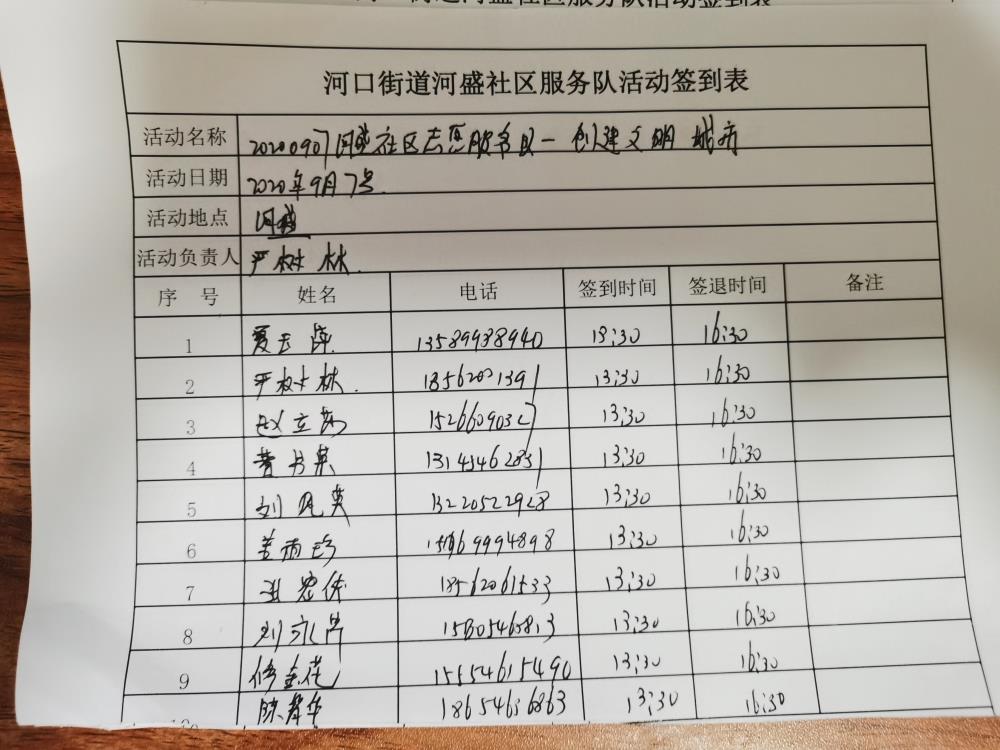 河口街道河盛社区服务队活动签到表
活动名称 20200907河盛社区志愿服务队一创建文明城市
活动日期 2020年9月7号
活动地点 河盛
活动负责人 严树林
序号 姓名 电话 签到时间 签退时间 备注
1 13589938940 13:30 16:30
2 严树林 1856207139 13:30 16:30
3 15266090327 13:30 16:30
4 13:30 16:30
5 刘凤英 13220522928 13:30 16:30
6 13:30 16:30
7 18562061533 13:30 16:30
8 刘永芹 13:30 16:30
9 修金花 15554615490 13:30 16:30
陈翠华 18654636863 13:30 16:30